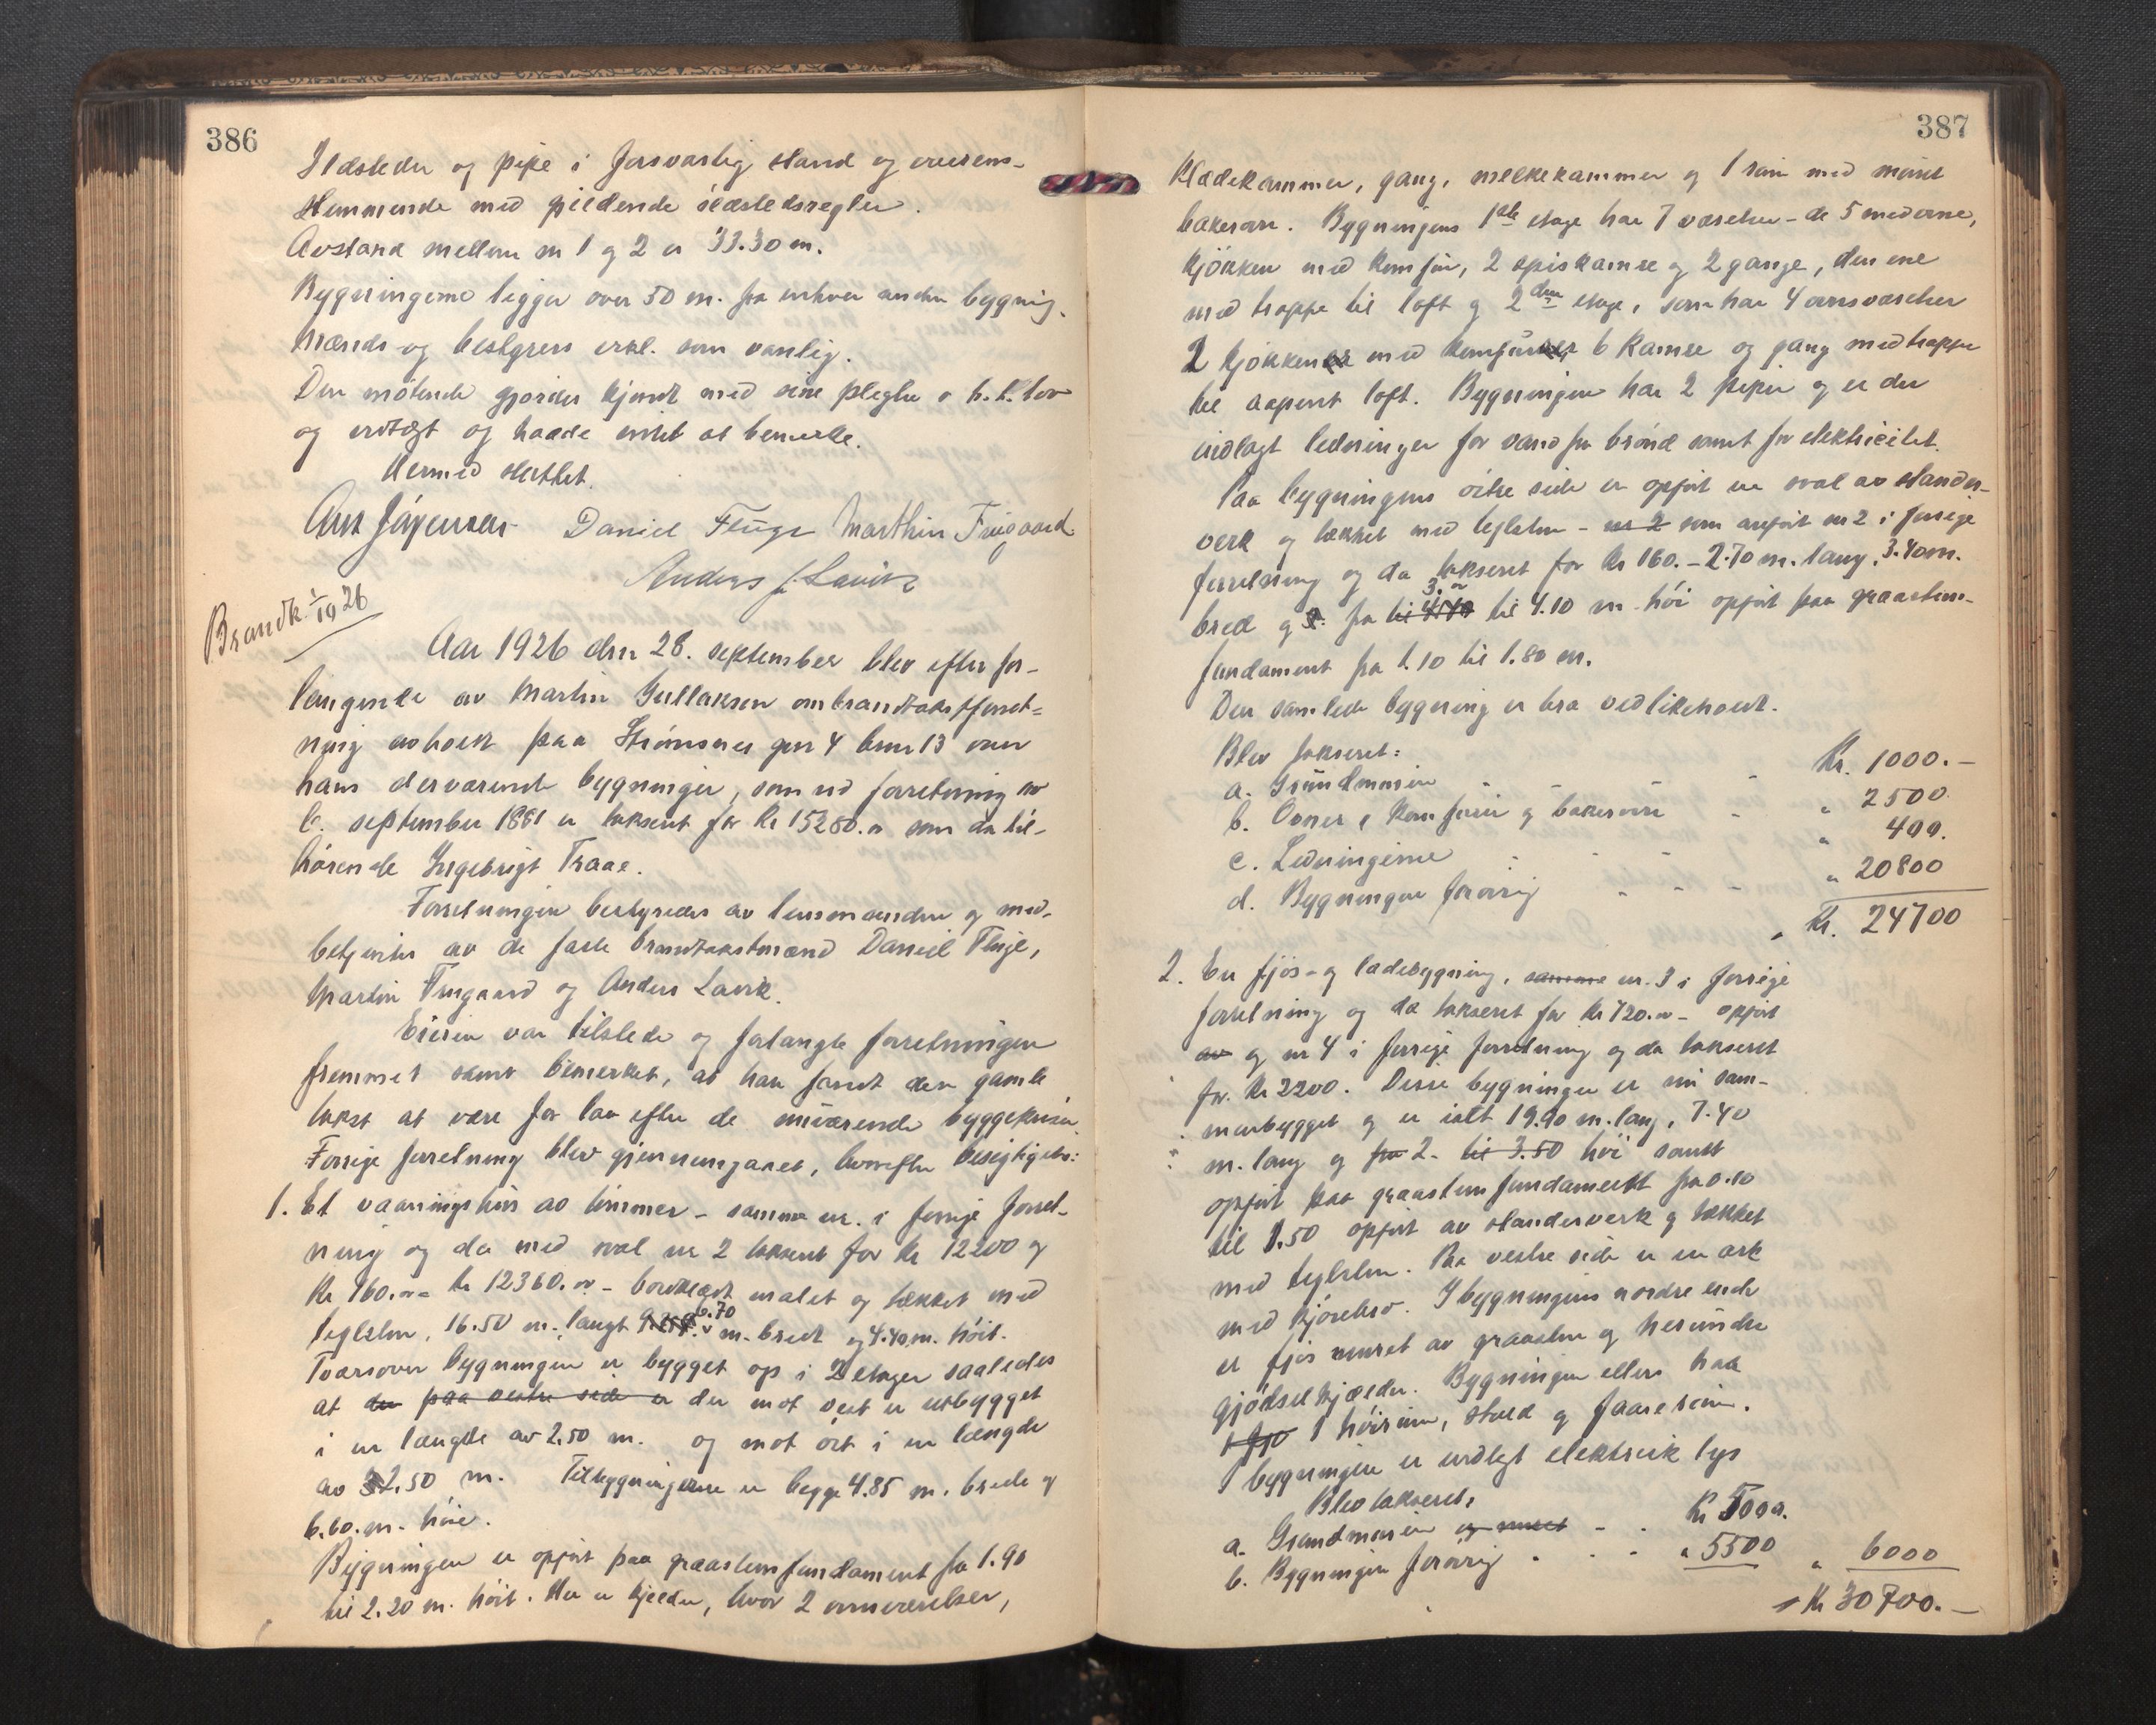 386
Ildsteder og pipe i forsvarlig stand og overens-
stemmende med gjeldende ildstedsregler.
Avstand mellem nr 1 og 2 er 33.30 m.
Bygningerne ligger over 50 m. fra enhver anden bygning.
Mænds- og bestyrers erkl. som vanlig.
Den møtende gjordes kjendt med sine pligter e b.k. lov
og vedtægt og hadde intet at bemerke.
Hermed sluttet.
Ant Jørgensen Daniel Fluge Marthin Trugaard
Anders J. Lavik
Brandk. 1/10 26
Aar 1926 den 28. september blev efter for-
langende av Martin Gullaksen om brandtakstforret-
ning avholdt paa Strømsnes gnr 4 bnr 13 over
hans derværende bygninger, som ved forretning av
6. september 1881 er taksert for kr 15280.oo som da til-
hørende Ingebrigt Traae.
Forretningen bestyredes av lensmanden og med-
betjentes av de faste brandtakstmænd Daniel Fluge,
Martin Trugaard og Anders Lavik.
Eieren var tilstede og forlangte forretningen
fremmet samt bemerket, at han fandt den gamle
takst at være for lav efter de nuværende byggepriser.
Forrige forretning blev gjennemgaaet, hvorefter besigtigets:
1. Et vaaningshus av tømmer - samme nr. i forrige forret-
ning og da med sval nr 2 taksert for kr 12200 og
Kr 160.oo = kr 12360.oo - bordklædt malet og tækket med
teglsten, 16.50 m. langt 6.70 m. bredt og 4.40 m. høit.
Tversover bygningen er bygget op i 2 etager saaledes
at der paa vestre side er der mot vest er utbygget
i en længde av 2.50 m. og mot øst i en længde
av 2.50 m. Tilbygningerne er begge 4.85 m. brede og
6.60. m. høie.
Bygningen er opført paa graastensfundament fra 1.90
til 2.20 m. høit. Her er kjelder, hvor 2 ovnsværelser,
387
Klædekammer, gang, melkekammer og 1 rum med muret
bakerovn. Bygningens 1ste etage har 7 værelser - de 5 med ovne,
kjøkken med komfür, 2 spiskamre og 2 gange, den ene
med trappe til loft og 2den etage, som har 4 ovnsværelser
2 kjøkkener med komfürer 6 kamre og gang med trappe
til aapent loft. Bygningen har 2 piper og er der
indlagt ledninger for vand fra brønd samt for elektricitet.
Paa bygningens østre side er opført en sval av stender-
verk og tækket med teglsten - nr 2 som anført nr 2 i forrige
forretning og da takseret for kr 160. - 2.70 m. lang, 3.40 m.
bred og fra 3.oo til 4.10 m høi opført paa graastens-
fundament fra 1.10 til 1.80 m.
Den samlede bygning er bra vedlikeholdt.
Blev takseret:
a. Grundmuren Kr. 1000.-
b. Ovner, komfürer og bakerovn " 2500
c. Ledningerne " 400.
d. Bygningen forøvrig " 20800
Kr. 24700
2. En fjøs- og ladebygning, samme nr. 3 i forrige
forretning og da takseret for kr 720.oo - opført
av og nr 4 i forrige forretning og da takseret
for kr 2200. Disse bygninger er nu sam-
menbygget og er ialt 19.90 m. lang, 7.40
m. lang og fra 2. til 3.50 høi samt
opført paa graastensfundament fra 0.10
til 1.50 opført av stenderverk og tækket
med teglsten. Paa vestre side er en ark
med kjørebro. I bygningens nordre ende
er fjøs muret av graasten og herunder
gjødselkjælder. Bygningen ellers har
1 høirum, stald og faarerum.
I bygningen er indlagt elektrisk lys
Blev takseret:
a. Grundmuren og muret Kr 500.
b. Bygningen forøvrig " 5500 " 6000
Kr 30700.-